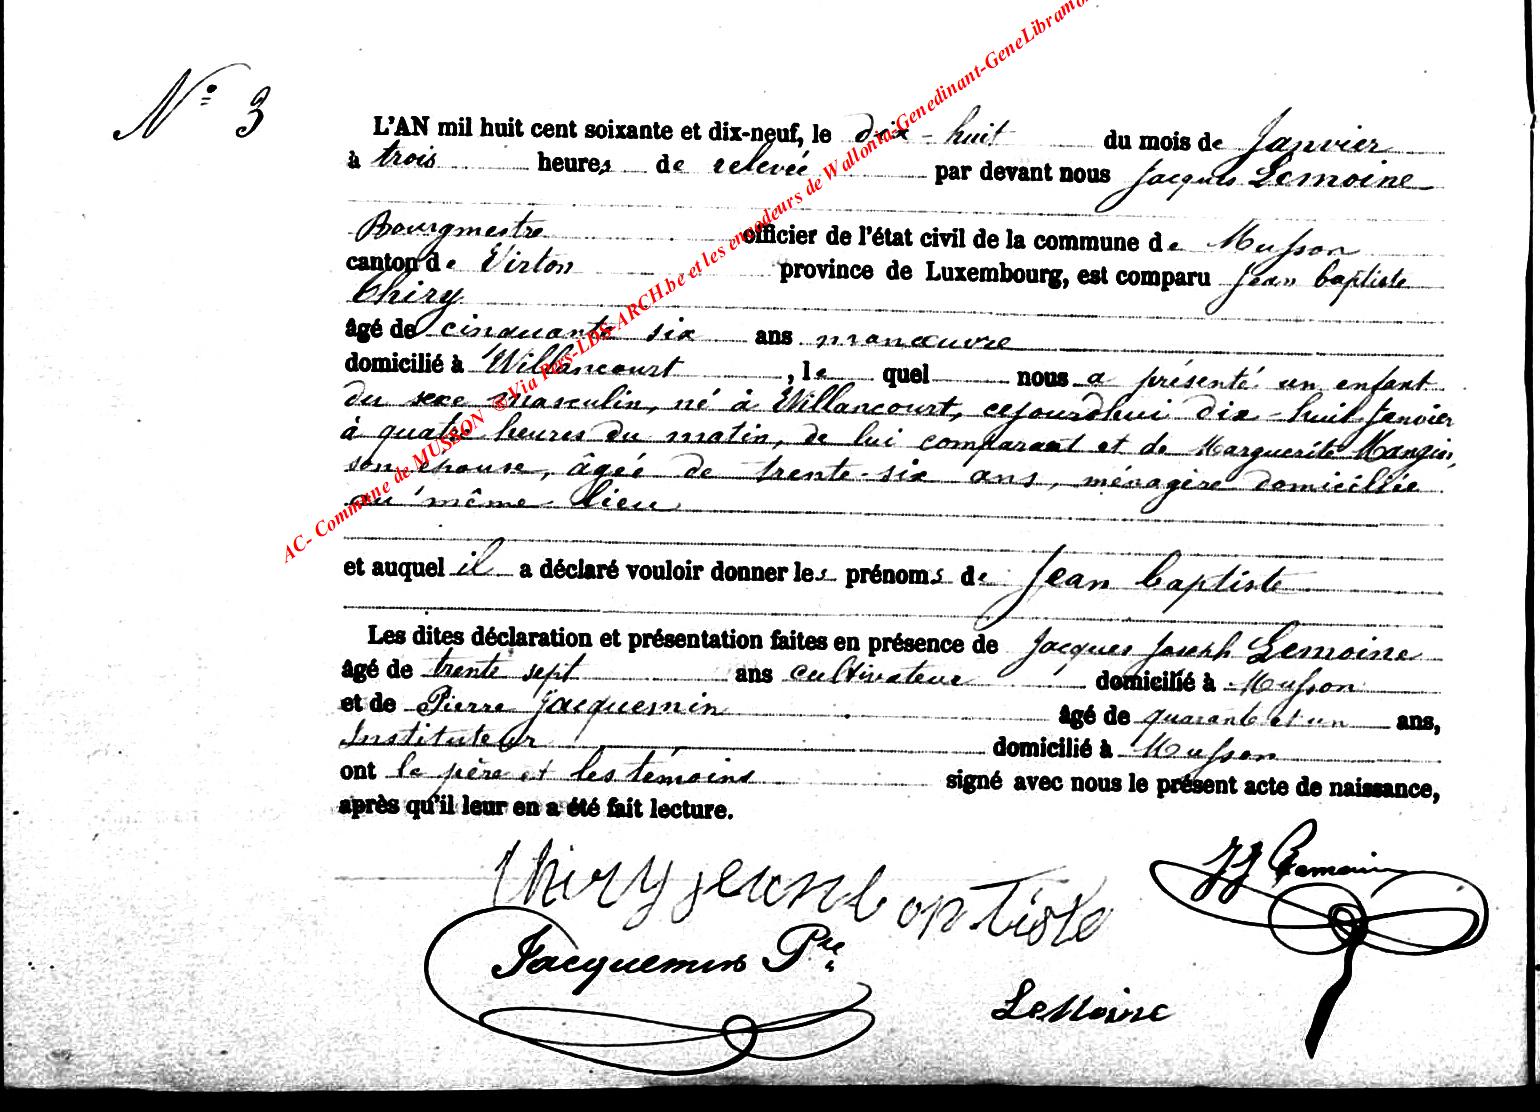 N° 3
L'AN mil huit cent soixante et dix-neuf, le dix-huit du mois de Janvier
à trois heures de relevée par devant nous Jacques Lemoine
Bourgmestre officier de l'état civil de la commune de Musson
canton de Virton province de Luxembourg, est comparu Jean baptiste
Thiry
âgé de cinquante six ans manœuvre
domicilié à Willancourt, le quel nous a présenté un enfant
du sexe masculin, né à Willancourt, cejourdhui dix-huit Janvier
à quatre heures du matin, de lui comparant et de Marguerite Mangin,
son épouse, âgée de trente-six ans, ménagère domiciliée
au même lieu
et auquel il a déclaré vouloir donner les prénoms de Jean baptiste
Les dites déclaration et présentation faites en présence de Jacques Joseph Lemoine
âgé de trente sept ans cultivateur domicilié à Musson
et de Pierre Jacquemin âgé de quarante et un ans,
Instituteur domicilié à Musson
ont le père et les témoins signé avec nous le présent acte de naissance,
après qu'il leur en a été fait lecture.
Thiry jean baptiste
JJ Lemoine
Jacquemin Pre
LeMoine
AC- Commune de MUSSON ®Via Pars-LDS-ARCH.be et les encodeurs de Wallonia-Genedinant-GeneLibramo